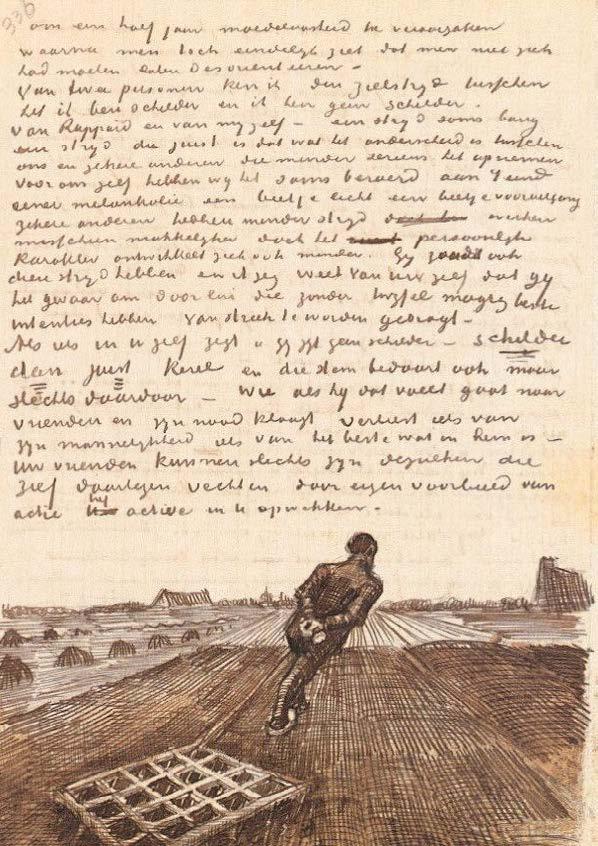 336
om een half jaar moedeloosheid te veroorzaken
waarna men toch eindelijk ziet dat men niet zich
had moeten laten desorienteeren —
Van twee personen ken ik den zielstrijd tusschen
het ik ben schilder en ik ben geen schilder.
Van Rappard en van mijzelf — een strijd soms bang
een strijd die juist is dat wat het onderscheid is tusschen
ons en zekere anderen die minder serieus het opnemen
voor ons zelf hebben wij het soms beroerd aan 't eind
eener melancholie een beetje licht een beetje vooruitgang
zekere anderen hebben minder strijd doch werken
misschien makkelijker doch het persoonlijk
karakter ontwikkelt zich ook minder. Gij zoudt ook
dien strijd hebben en ik zeg weet van uw zelf dat gij
het gevaar om door lui die zonder twijfel magnifieke
intenties hebben van streek te worden gebragt —
Als iets in U zelf zegt "gij zijt geen schilder" — schilder
dan juist kerel en die stem bedaart ook maar
slechts daardoor — Wie als hij dat voelt gaat naar
vrienden en zijn nood klaagt verliest iets van
zijn mannelijkheid iets van het beste wat in hem is —
Uw vrienden kunnen slechts zijn dezulken die
zelf daartegen vechten door eigen voorbeeld van
actie de active in U opwekken.